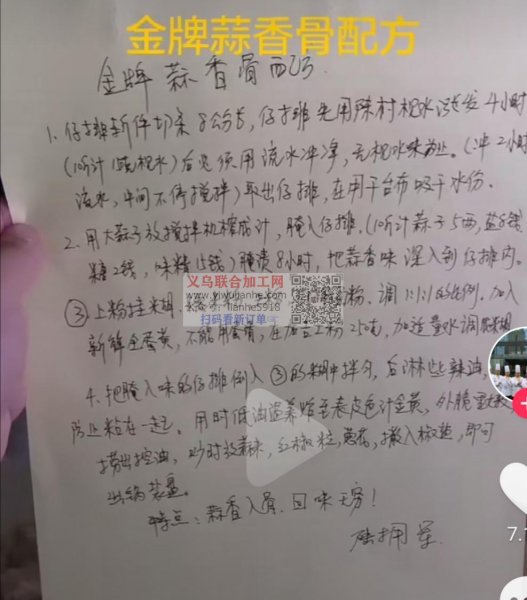 金牌蒜香骨配方
金牌蒜香骨配方
1. 仔排斩件切条8公分长,仔排先用陈村枧水浸发4小时
(10斤计1瓶枧水)后必须用流水冲净,无枧水味为止。(冲2小时
流水,中间不停搅拌)取出仔排,在用干台布吸干水份。
2. 用大蒜子放搅拌机榨成汁,腌入仔排,(10斤计蒜子5两,盐8钱
糖2钱,味精15钱)腌渍8小时,把蒜香味深入到仔排内。
③上粉挂糊,粉,调1:1:1的比例,加入
新鲜全蛋黄,不能用蛋青,在加吉士粉25克,加适量水调成糊
4. 把腌入味的仔排倒入③的糊中拌匀,后淋些辣油,
防止粘在一起。用时低油温养炸至表皮色汁金黄,外脆里嫩
捞出控油,炒时放蒜末,红椒粒,葱花,撒入椒盐,即可
出锅装盘。
特点:蒜香入骨,回味无穷!
义乌联合加工网
www.yiwuganhe.com
微信:lianhe5918
扫码看新订单
7.